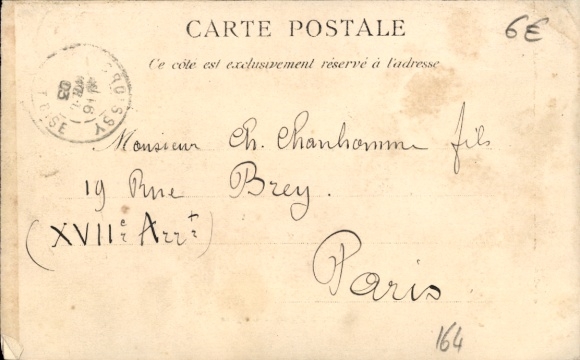 CARTE POSTALE
6E
Ce côte est exclusivement réservé à l'adresse
OISE
03
Monsieur Ch. Chanhomme fils
19 Rue Brey.
(XVIIe Arrt)
Paris
164